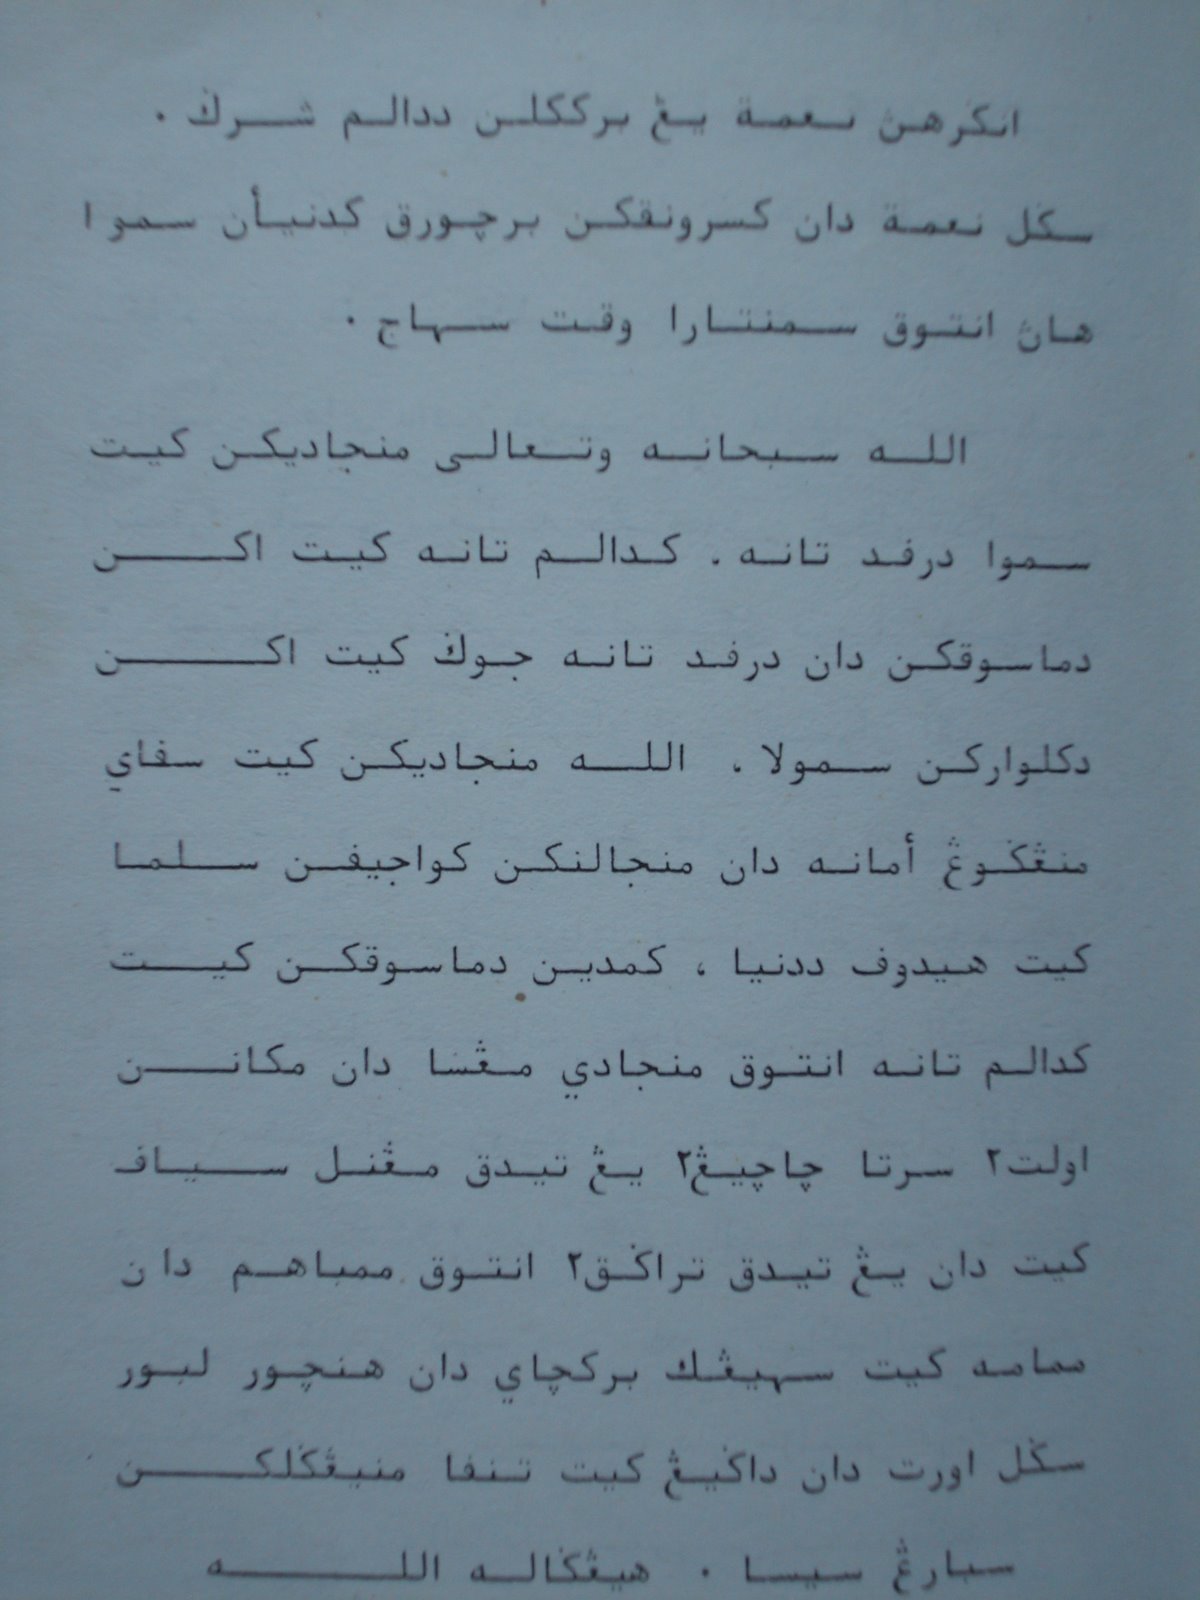 انݢرهڽ نعمة يڠ برككلن ددالم شرݢ .
سݢل نعمة دان كسرونقكن برچورق كدنيأن سموا
هاڽ انتوق سمنتارا وقت سهاج .
الله سبحانه وتعالى منجاديكن كيت
سموا درفد تانه . كدالم تانه كيت اكن
دماسوقكن دان درفد تانه جوݢ كيت اكن
دكلواركن سمولا . الله منجاديكن كيت سفاي
منڠݢوڠ أمانه دان منجالنكن كواجيفن سلما
كيت هيدوف ددنيا ، كمدين دماسوقكن كيت
كدالم تانه انتوق منجادي مڠسا دان مكانن
اولت٢ سرتا چاچيڠ٢ يڠ تيدق مڠنل سياف
كيت دان يڠ تيدق تراݢق٢ انتوق ممباهم دان
ممامه كيت سهيڠݢ بركچاي دان هنچور لبور
سݢل اورت دان داݢيڠ كيت تنفا منيڠݢلكن
سبارڠ سيسا . هيڠݢاله الله